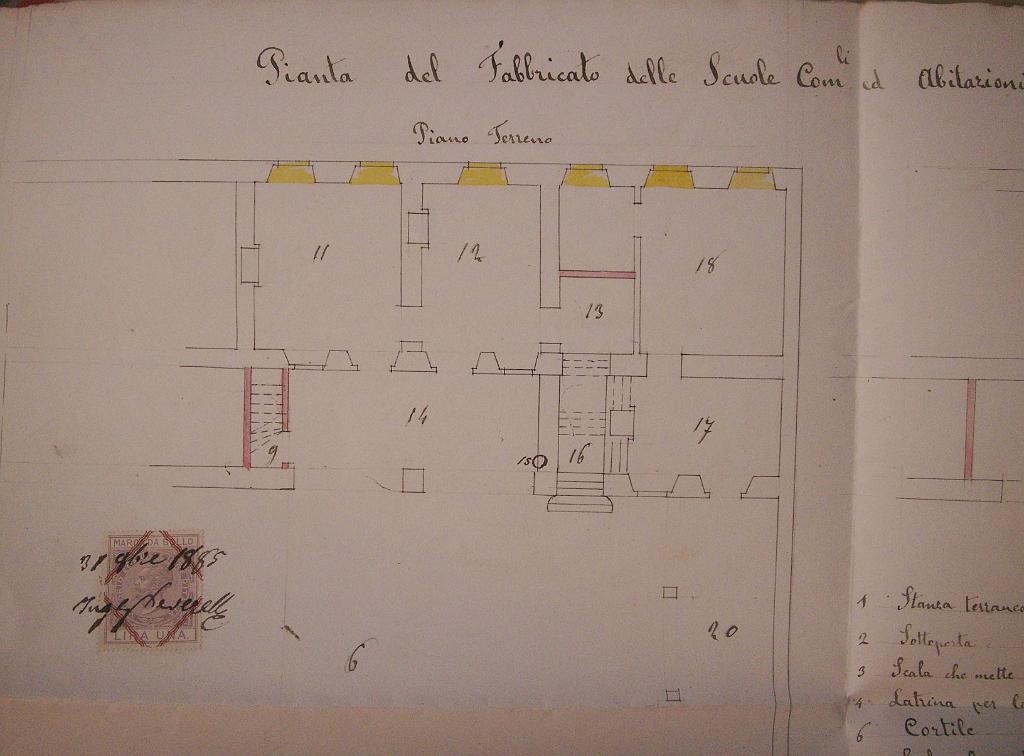 Pianta del Fabbricato delle Scuole Com.li ed Abitazioni
Piano Terreno
11
12
18
13
14
9
15
16
17
MARCA DA BOLLO
1885
LIRA UNA
6
20
1 Stanza terranea
2 Sottoporta
3 Scala che mette
4 Latrina per
6 Cortile